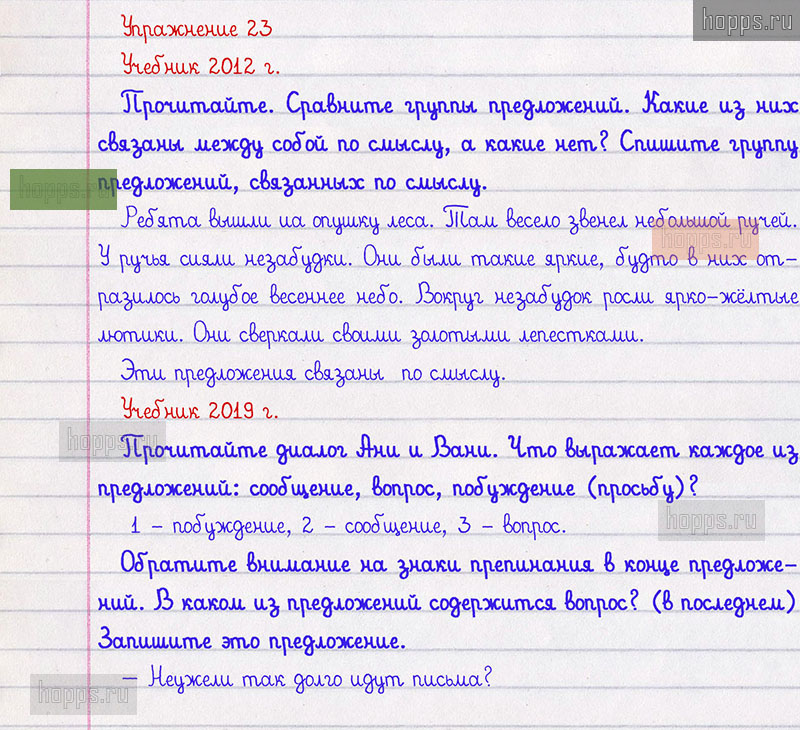 hopps.ru
Упражнение 23
Учебник 2012 г.
Прочитайте. Сравните группы предложений. Какие из них
связаны между собой по смыслу, а какие нет? Спишите группу
hopps.ru
предложений, связанных по смыслу.
Ребята вышли иа опушку леса. Там весело звенел небольшой ручей.
hopps.ru
У ручья сияли незабудки. Они были такие яркие, будто в них от-
разилось голубое весеннее небо. Вокруг незабудок росли ярко-жёлтые
лютики. Они сверкали своими золотыми лепестками.
Эти предложения связаны по смыслу.
Учебник 2019 г.
hopps.ru
Прочитайте диалог Ани и Вани. Что выражает каждое из
предложений: сообщение, вопрос, побуждение (просьбу)?
1 – побуждение, 2 – сообщение, 3 – вопрос.
hopps.ru
Обратите внимание на знаки препинания в конце предложе-
ний. В каком из предложений содержится вопрос? (в последнем)
Запишите это предложение.
– Неужели так долго идут письма?
hopps.ru